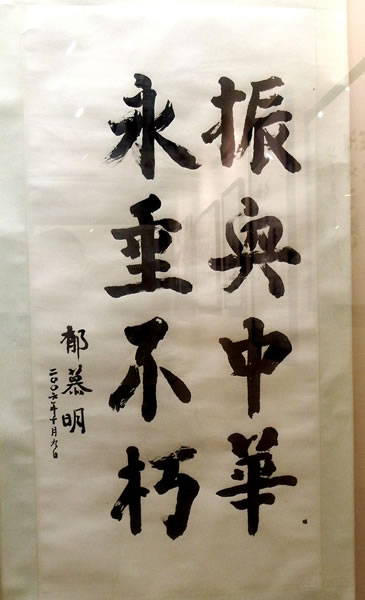 振興中華
永垂不朽
郁慕明
二〇〇六年十月九日